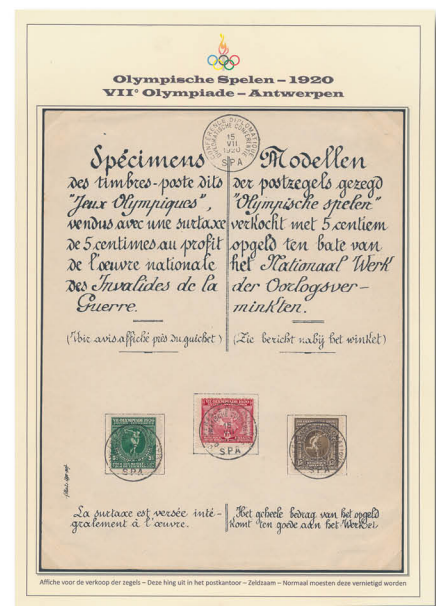 Olympische Spelen – 1920
VIIe Olympiade – Antwerpen
CONFERENCE DIPLOMATIQUE
15
VII
1920
SPA
Spécimens
des timbres-poste dits
"Jeux Olympiques",
vendus avec une surtaxe
de 5 centimes au profit
de l'œuvre nationale
des Invalides de la
Guerre.
(Voir avis affiché près du guichet)
Modellen
der postzegels gezegd
"Olympische spelen"
verkocht met 5 centiem
opgeld ten bate van
het Nationaal Werk
der Oorlogsver-
minkten.
(Zie bericht nabij het winket)
SPA
SPA
SPA
La surtaxe est versée inté-
gralement à l'œuvre.
Het geheele bedrag van het opgeld
komt ten goede aan het Werk
Affiche voor de verkoop der zegels – Deze hing uit in het postkantoor – Zeldzaam – Normaal moesten deze vernietigd worden